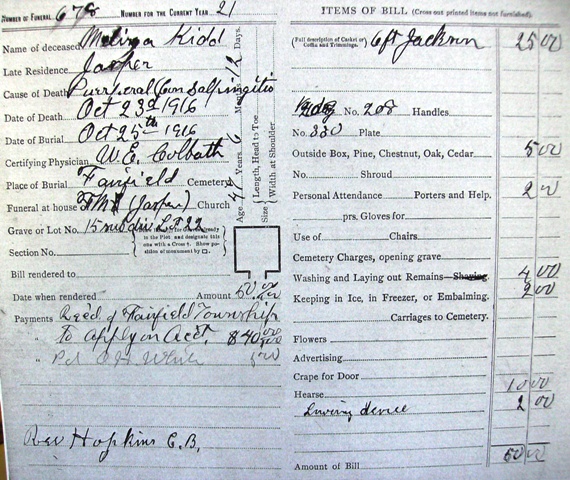 NUMBER OF FUNERAL 678 NUMBER FOR THE CURRENT YEAR 21
Name of deceased Kidd
Late Residence Jasper
Cause of Death
Date of Death Oct 23d 1916
Date of Burial Oct 25th 1916
Certifying Physician W. E. Colbath
Place of Burial Fairfield Cemetery
Funeral at house (Jasper) Church
Grave or Lot No. 15 sub div. Lot 22
to the Plot and designate this one with a Cross †. Show position of monument by □.
Section No.
Age 47 Years 6 Months 12 Days.
Size Length, Head to Toe
Width at Shoulder
Bill rendered to
Date when rendered Amount 60.00
Payments Recd. of Fairfield Township
" To apply on Acct. $40.00
" Pd White
Rev Hopkins C.B.
ITEMS OF BILL (Cross out printed items not furnished).
(Full description of Casket or Coffin and Trimmings.) 6ft Jackson 25 00
No. 208 Handles
No. 330 Plate
Outside Box, Pine, Chestnut, Oak, Cedar 5 00
No. Shroud
Personal Attendance Porters and Help. 2 00
prs. Gloves for
Use of Chairs.
Cemetery Charges, opening grave
Washing and Laying out Remains—Shaving. 4 00
Keeping in Ice, in Freezer, or Embalming. 2 00
Carriages to Cemetery.
Flowers
Advertising
Crape for Door
Hearse 10 00
Lowering device 2 00
Amount of Bill 60 00